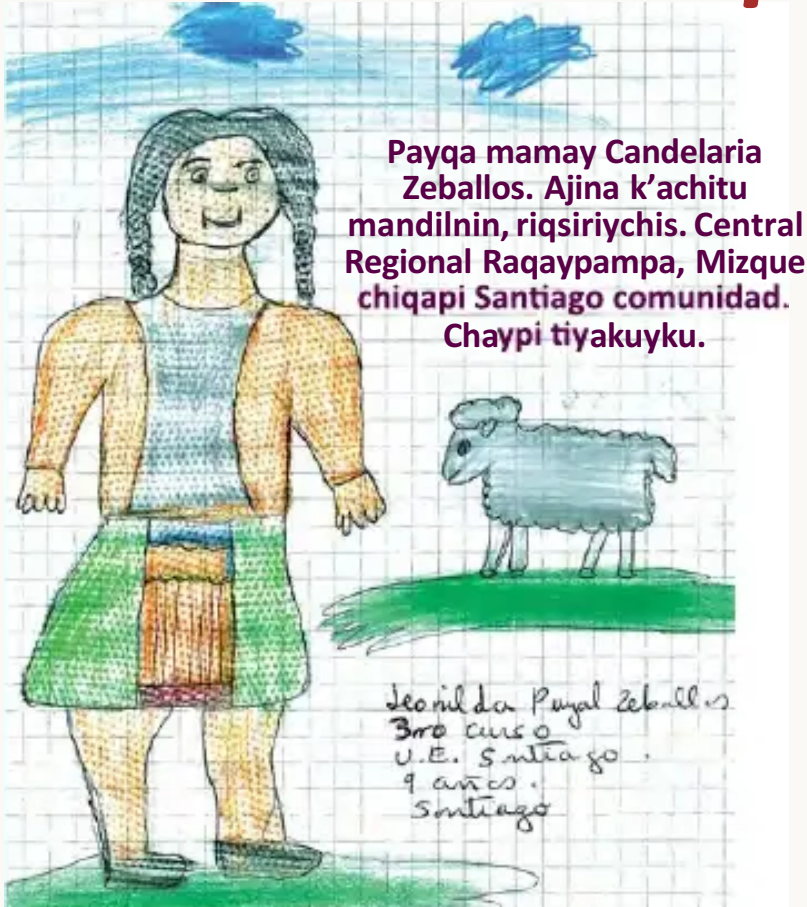 Payqa mamay Candelaria
Zeballos. Ajina k’achitu
mandilnin, riqsiriychis. Central
Regional Raqaypampa, Mizque
chiqapi Santiago comunidad.
Chaypi tiyakuyku.
Leonilda Zeballos
3ro curso
U.E. Santiago.
9 años.
Santiago